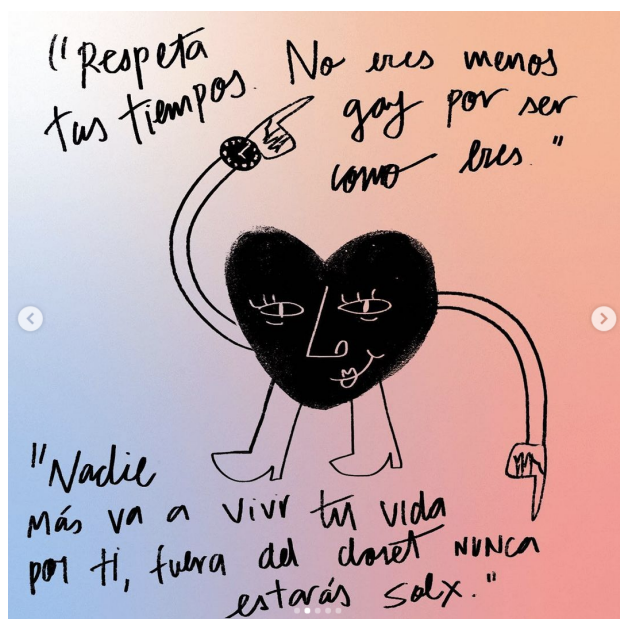 "Respeta
tus tiempos. No eres menos
gay por ser
como eres."
"Nadie
más va a vivir tu vida
por ti, fuera del closet NUNCA
estarás solx."